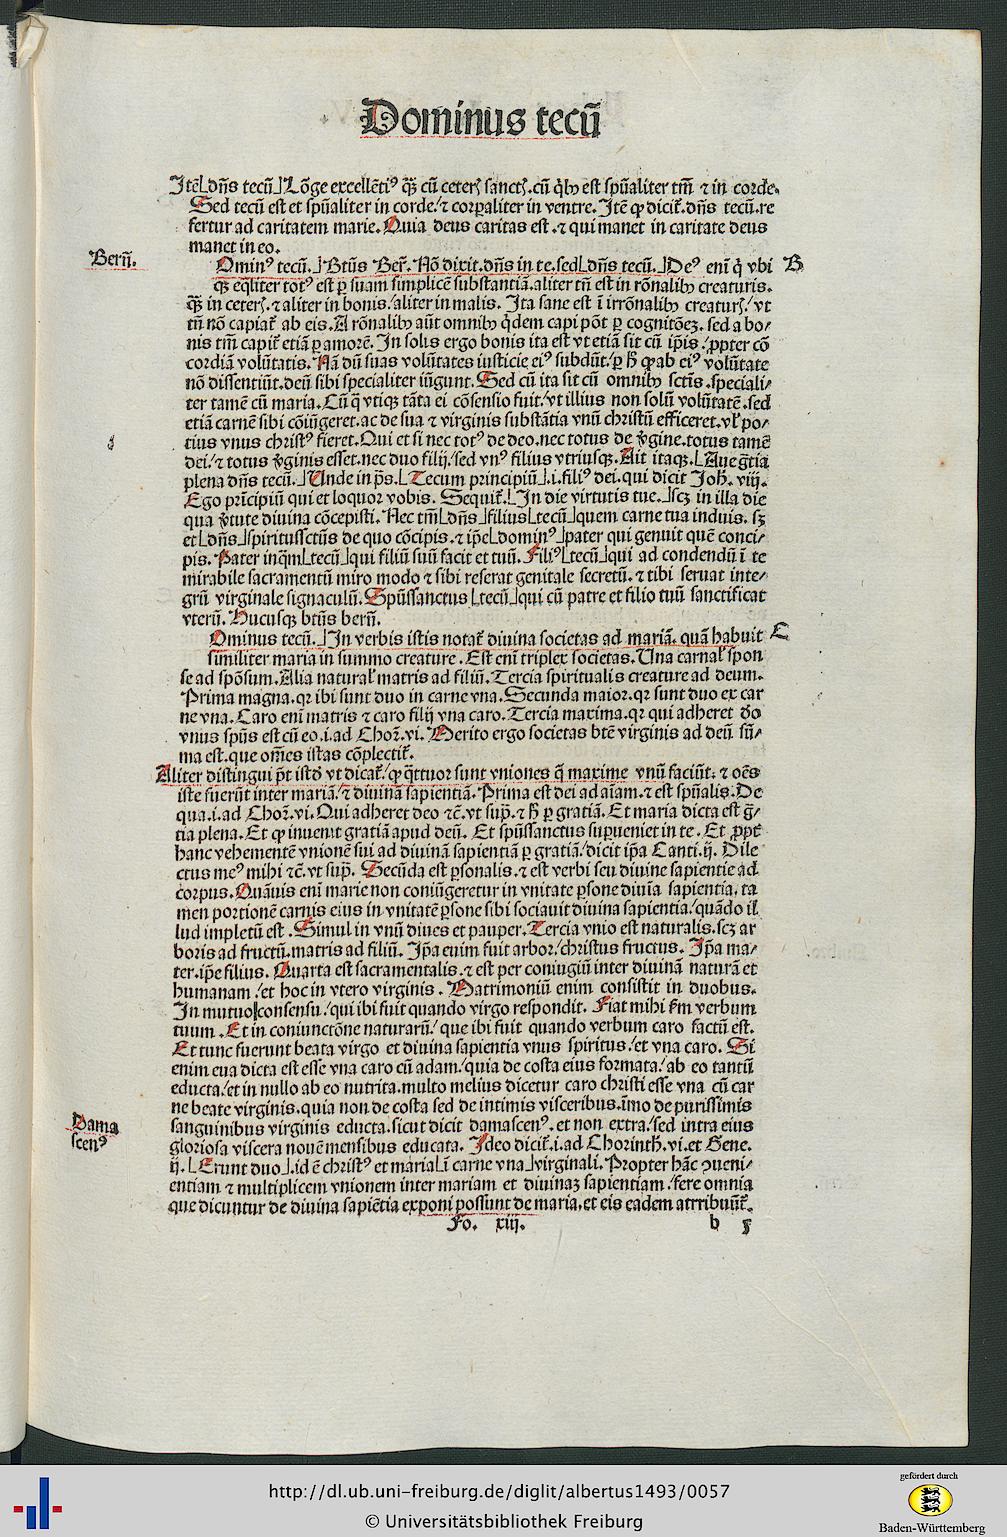 Dominus tecū
Itē dñs tecū Lōge excellētiꝰ qȝ cū ceterꝭ sanctꝭ. cū qͥbꝫ est spūaliter tm̄ ⁊ in corde.
Sed tecū est et spūaliter in corde: ⁊ corꝑaliter in ventre. Itē ꝙ dicit̄. dñs tecū. re
fertur ad caritatem marie. Quia deus caritas est. ⁊ qui manet in caritate deus
manet in eo.
Berñ.
Ominꝰ tecū. Btūs Ber. Nō dixit. dñs in te. sed dñs tecū. Deꝰ eni q̇ vbi
B
qȝ eqliter totꝰ est ꝑ suam simplicē substantiā. aliter tñ est in rōnalibꝫ creaturis.
qȝ in ceterꝭ. ⁊ aliter in bonis: aliter in malis. Ita sane est ī irrōnalibꝫ creaturꝭ: vt
tñ nō capiat̄ ab eis. A rōnalibꝫ aūt omnibꝫ qͥdem capi pōt ꝑ cognitōeȝ. sed a bo⸗
nis tm̄ capit̄ etiā ꝑ amorē. In solis ergo bonis ita est vt etiā sit cū ip̄is: ꝓpter cō
cordiā volūtatis. Nā dū suas volūtates iusticie eiꝰ subdūt: ꝑ h̄ ꝙ ab eiꝰ volūtate
nō dissentiūt. deū sibi specialiter iūgunt. Sed cū ita sit cū omnibꝫ sctīs. speciali⸗
ter tamē cū maria. Cū q̄ vtiqȝ tāta ei cōsensio fuit: vt illius non solū volūtatē. sed
etiā carnē sibi cōiūgeret. ac de sua ⁊ virginis substātia vnū christū efficeret. vl̓ po⸗
tius vnus christꝰ fieret. Qui et si nec totꝰ de deo. nec totus de v̓gine. totus tamē
dei: ⁊ totus v̓ginis esset. nec duo filij: sed vnꝰ filius vtriusqȝ. Ait itaqȝ. Aue gr̄tia
plena dñs tecū. Unde in ps̄. Tecum principiū .i. filiꝰ dei. qui dicit Joh̄. viij.
Ego prīcipiū qui et loquor vobis. Sequit̄. In die virtutis tue. scȝ in illa die
qua v̓tute diuina cōcepisti. Nec tm̄ dñs filius tecū quem carne tua induis. sȝ
et dñs spiritussctūs de quo cōcipis. ⁊ ip̄e dominꝰ pater qui genuit quē conci⸗
pis. Pater inqͣm tecū qui filiū suū facit et tuū. Filiꝰ tecū qui ad condendū ī te
mirabile sacramentū miro modo ⁊ sibi reserat genitale secretū. ⁊ tibi seruat inte⸗
grū virginale signaculū. Spūssanctus tecū qui cū patre et filio tuū sanctificat
vterū. Hucusqȝ btūs berñ.
Ominus tecū. In verbis istis notat̄ diuina societas ad mariā. quā habuit
C
similiter maria in summo creature. Est eni triplex societas. Una carnal̓ spon
se ad spōsum. Alia natural̓ matris ad filiū. Tercia spiritualis creature ad deum.
Prima magna. qr ibi sunt duo in carne vna. Secunda maior. qr sunt duo ex car
ne vna. Caro eni matris ⁊ caro filij vna caro. Tercia maxima. qr qui adheret deo
vnus spūs est cū eo. i. ad Chor̄. vi. Merito ergo societas btē virginis ad deū sū⸗
ma est. que omēs istas cōplectit̄.
Aliter distingui pōt istd̓ vt dicat̄: ꝙ q̄ttuor sunt vniones q̄ maxime vnū faciūt. ⁊ oēs
iste fuerūt inter mariā: ⁊ diuinā sapientiā. Prima est dei ad aīam. ⁊ est spūalis. De
qua .i. ad Chor̄. vi. Qui adheret deo ⁊c̄. vt sup̄. ⁊ h̄ ꝑ gratiā. Et maria dicta est gr̄⸗
tia plena. Et ꝙ inuenit gratiā apud deū. Et spūssanctus suꝑueniet in te. Et ꝓpt̄
hanc vehementē vnionē sui ad diuinā sapientiā ꝑ gratiā: dicit ip̄a Canti. ij. Dile
ctus meꝰ mihi ⁊c̄. vt sup̄. Secūda est ꝑsonalis. ⁊ est verbi seu diuine sapientie ad
corpus. Quāuis eni marie non coniūgeretur in vnitate ꝑsone diuīa sapientia. ta
men portionē carnis eius in vnitatē ꝑsone sibi sociauit diuina sapientia: quādo il
lud impletū est. Simul in vnū diues et pauper. Tercia vnio est naturalis. scȝ ar
boris ad fructū. matris ad filiū. Ip̄a enim fuit arbor: christus fructus. Ip̄a ma⸗
ter. ip̄e filius. Quarta est sacramentalis. ⁊ est per coniugiū inter diuinā naturā et
humanam: et hoc in vtero virginis. Matrimoniū enim consistit in duobus.
In mutuo consensu: qui ibi fuit quando virgo respondit. Fiat mihi ẜm verbum
tuum. Et in coniunctōne naturarū: que ibi fuit quando verbum caro factū est.
Et tunc fuerunt beata virgo et diuina sapientia vnus spiritus: et vna caro. Si
enim eua dicta est esse vna caro cū adam: quia de costa eius formata: ab eo tantū
educta: et in nullo ab eo nutrita. multo melius dicetur caro christi esse vna cū car
ne beate virginis. quia non de costa sed de intimis visceribus. īmo de purissimis
Dama
scenꝰ
sanguinibus virginis educta. sicut dicit damascenꝰ. et non extra: sed intra eius
gloriosa viscera nouē mensibus educata. Ideo dicit̄ .i. ad Chorinth̄. vi. et Gene.
ij. Erunt duo .id ē christꝰ et maria ī carne vna virginali. Propter hāc ꝯueni⸗
entiam ⁊ multiplicem vnionem inter mariam et diuinaȝ sapientiam: fere omnia
que dicuntur de diuina sapiētia exponi possunt de maria. et eis eadem attribuūt̄.
Fo. xiij.
b 5
http://dl.ub.uni-freiburg.de/diglit/albertus1493/0057
© Universitätsbibliothek Freiburg
gefördert durch
Baden-Württemberg